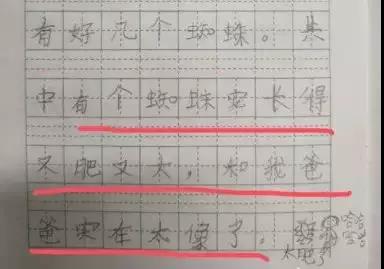 有好几个蜘蛛。其
中有个蜘蛛它长得
又肥又大，和我爸
爸实在太像了。